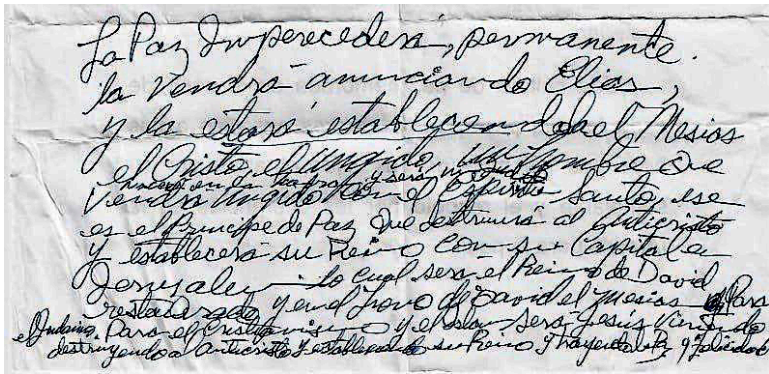 La Paz Imperecedera, permanente.
la vendrá anunciando Elias,
y la estará estableciendola el Mesias
el Cristo, el Ungido, un hombre que
nacerá en la tierra y será
vendra Ungido con el Espiritu Santo, ese
es el Principe de Paz que destruirá al anticristo
y establecerá su Reino con su Capital en
Jerusalen lo cual será el Reino de David
restaurado y en el Trono de David el Mesias Para
el Judaismo. Para el Cristianismo y el Islam será Jesús Viniendo
destruyendo al anticristo y estableciendo su Reino y trayendo la Paz y felicidad